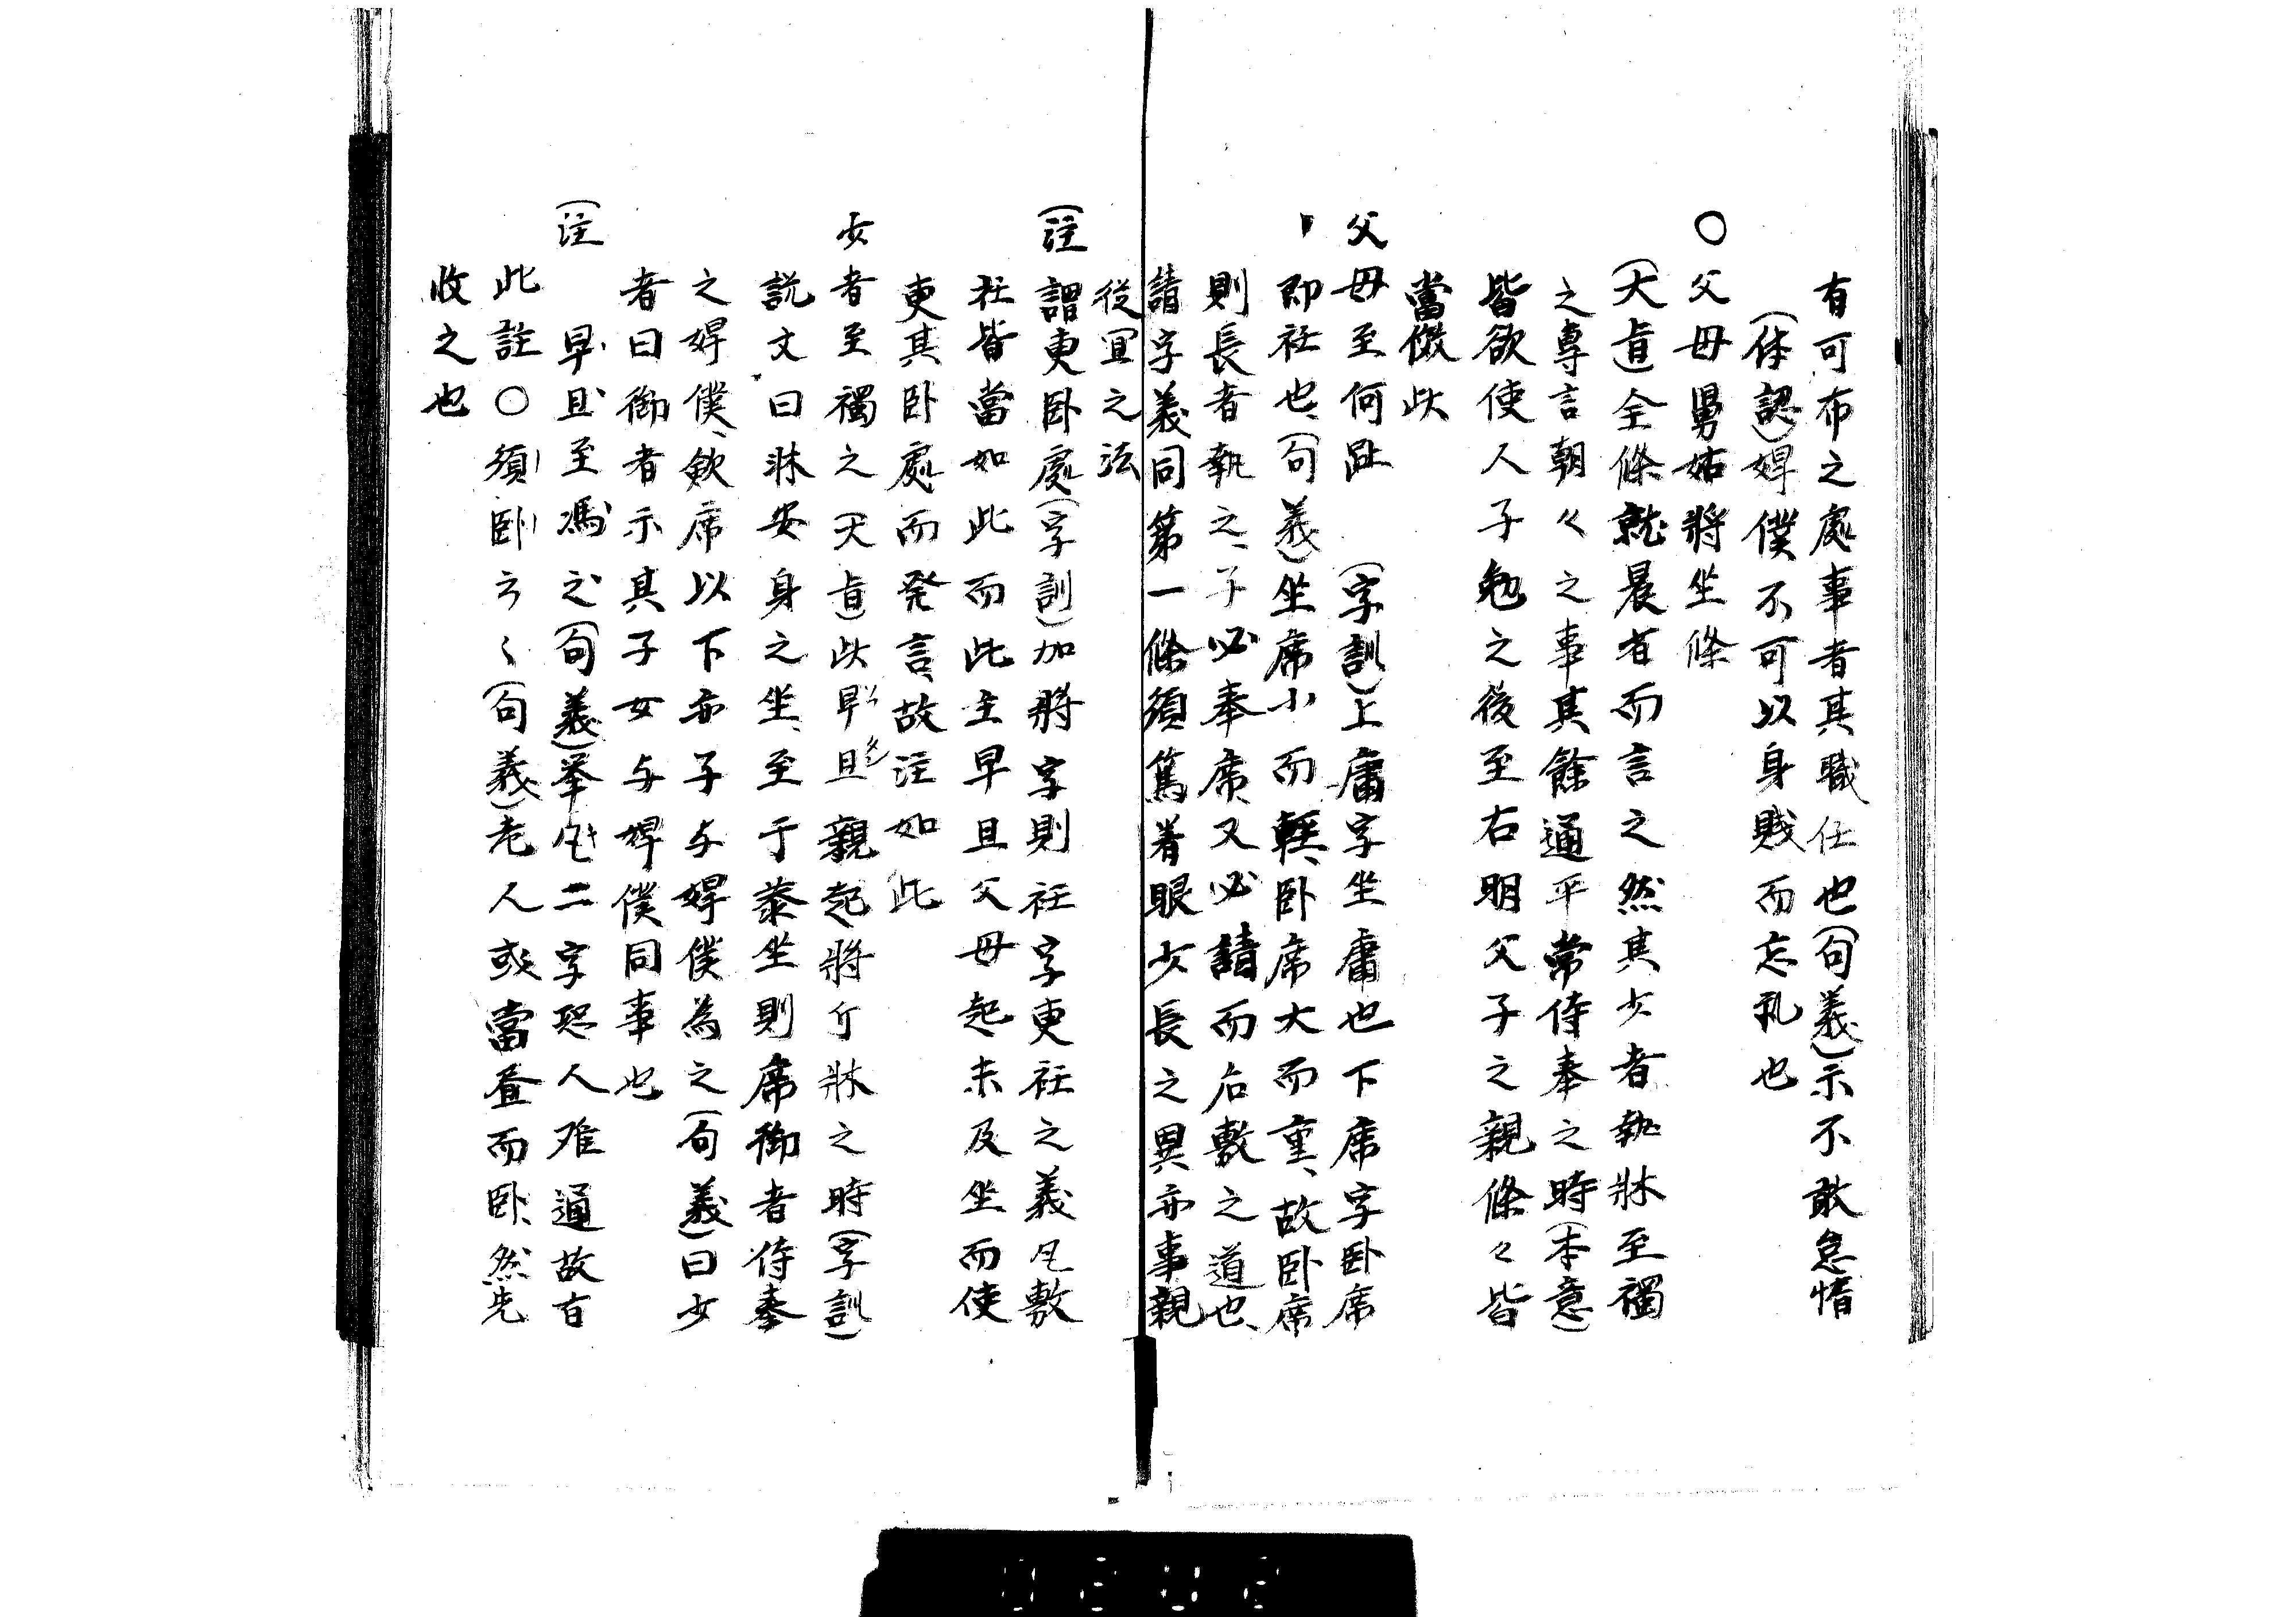 有可布之處事者其職任也(句義)示不敢怠惰
(体認)婢僕不可以身賤而忘礼也
○父母舅姑將坐條
(大旨)全條就晨省而言之然其少者執牀至襡
之專言朝々之事其餘通平常侍奉之時(本意)
皆欲使人子勉之後至右明父子之親條々皆
當倣此
父母至何趾 (字訓)上席字坐席也下席字卧席
即衽也、(句義)坐席小而輕、卧席大而重、故卧席
則長者執之、子必奉席又必請而后敷之道也、
請字義同第一條須篤着眼少長之異亦事親
從宜之法
(註 謂更卧處(字訓)加將字則衽字更衽之義凡敷
衽皆當如此而此主早旦父母起未及坐而使
更其卧處而発言、故注如此
少者至襡之(大旨)此早旦親起將行牀之時(字訓)
説文曰牀安身之坐、至于恭坐則席御者侍奉
之婢僕、斂席以下亦子与婢僕為之(句義)曰少
者曰御者示其子女与婢僕同事也
(註 早旦至馮之(句義)举凡二字恐人难通故有
此註○須卧云々(句義)老人或當昼而卧、然先
收之也